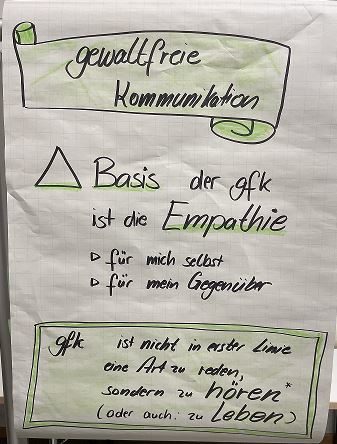 gewaltfreie
Kommunikation
Basis der gfk
ist die Empathie
▷ für mich selbst
▷ für mein Gegenüber
gfk ist nicht in erster Linie
eine Art zu reden,
sondern zu hören*
(oder auch: zu Leben)